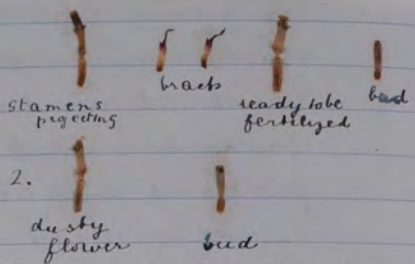 bracts
stamens
projecting
ready to be
fertilized
bud
2.
dusty
flower
bud